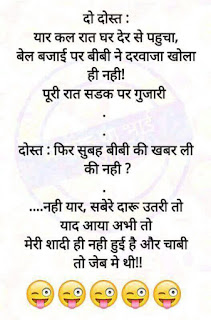 दो दोस्त :
यार कल रात घर देर से पहुचा,
बेल बजाई पर बीबी ने दरवाजा खोला
ही नही!
पूरी रात सडक पर गुजारी
.
.
दोस्त : फिर सुबह बीबी की खबर ली
की नही ?
.
....नही यार, सबेरे दारू उतरी तो
याद आया अभी तो
मेरी शादी ही नही हुई है और चाबी
तो जेब मे थी!!
😜😜😜😜😜